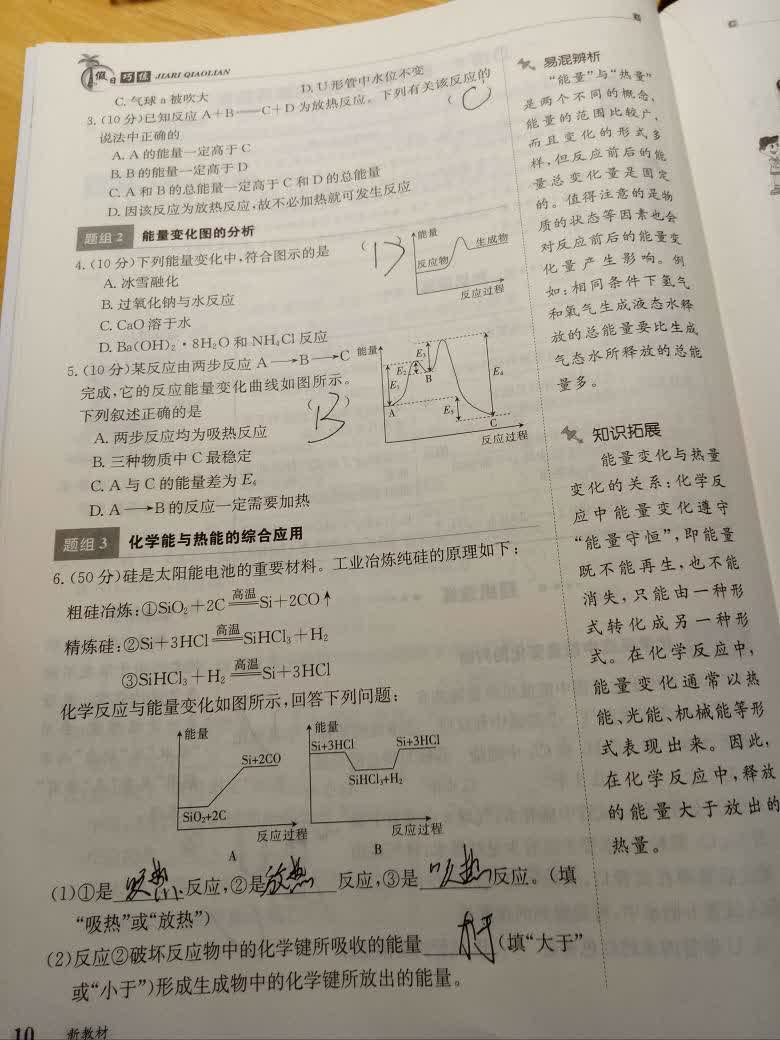 假日巧练 JIARI QIAOLIAN
C. 气球 a 被吹大 D. U 形管中水位不变
3. (10 分)已知反应 A+B══C+D 为放热反应。下列有关该反应的
说法中正确的 ( C )
A. A 的能量一定高于 C
B. B 的能量一定高于 D
C. A 和 B 的总能量一定高于 C 和 D 的总能量
D. 因该反应为放热反应,故不必加热就可发生反应
题组 2 能量变化图的分析
4. (10 分)下列能量变化中,符合图示的是 ( D )
A. 冰雪融化
B. 过氧化钠与水反应
C. CaO 溶于水
D. Ba(OH)₂·8H₂O 和 NH₄Cl 反应
能量
生成物
反应物
反应过程
5. (10 分)某反应由两步反应 A→B→C
完成,它的反应能量变化曲线如图所示。
下列叙述正确的是 ( B )
A. 两步反应均为吸热反应
B. 三种物质中 C 最稳定
C. A 与 C 的能量差为 E₄
D. A→B 的反应一定需要加热
能量
E₃
E₂
B
E₁
E₄
A
E₅
C
反应过程
题组 3 化学能与热能的综合应用
6. (50 分)硅是太阳能电池的重要材料。工业冶炼纯硅的原理如下:
粗硅冶炼:①SiO₂+2C══高温══Si+2CO↑
精炼硅:②Si+3HCl══高温══SiHCl₃+H₂
③SiHCl₃+H₂══高温══Si+3HCl
化学反应与能量变化如图所示,回答下列问题:
能量
Si+2CO
SiO₂+2C
反应过程
A
能量
Si+3HCl
Si+3HCl
SiHCl₃+H₂
反应过程
B
(1)①是 吸热 反应,②是 放热 反应,③是 吸热 反应。(填
“吸热”或“放热”)
(2)反应②破坏反应物中的化学键所吸收的能量 (填“大于”
或“小于”)形成生成物中的化学键所放出的能量。
10 新教材
易混辨析
“能量”与“热量”
是两个不同的概念,
能量的范围比较广,
而且变化的形式多
样,但反应前后的能
量总变化量是固定
的。值得注意的是物
质的状态等因素也会
对反应前后的能量变
化量产生影响。例
如:相同条件下氢气
和氧气生成液态水释
放的总能量要比生成
气态水所释放的总能
量多。
知识拓展
能量变化与热量
变化的关系:化学反
应中能量变化遵守
“能量守恒”,即能量
既不能再生,也不能
消失,只能由一种形
式转化成另一种形
式。在化学反应中,
能量变化通常以热
能、光能、机械能等形
式表现出来。因此,
在化学反应中,释放
的能量大于放出的
热量。